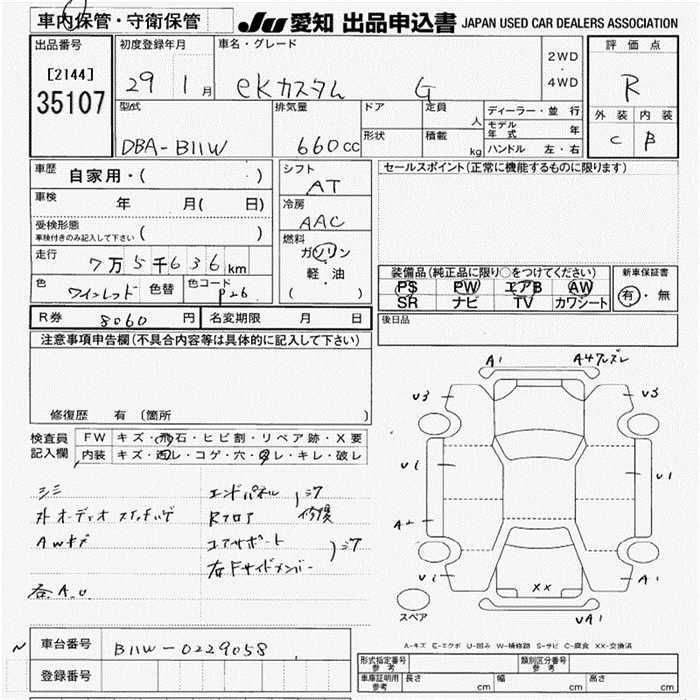 車内保管・守衛保管 JU 愛知 出品申込書 JAPAN USED CAR DEALERS ASSOCIATION
出品番号 初度登録年月 車名・グレード 2WD ・ 4WD 評価点
[2144] 29 1月 eKカスタム G R
35107
型式 排気量 ドア 定員 人 ディーラー・並行 外装 内装
DBA-B11W 660cc 形状 積載 kg モデル年式 年 C B
ハンドル 左・右
車歴 自家用・( ) シフト AT セールスポイント(正常に機能するものに限ります)
車検 年 月( 日) 冷房 AAC
受検形態 車検付きのみ記入して下さい ( ) 燃料
走行 7万5千636km ガソリン
軽・油
( )
色 ワインレッド 色替 色コード P26
装備品(純正品に限り○をつけてください) 新車保証書
PS PW エアB AW 有・無
SR ナビ TV カワシート
R券 8060円 名変期限 月 日 後日品
注意事項申告欄(不具合内容等は具体的に記入して下さい)
修復歴 有 〔箇所 〕
検査員記入欄 FW キズ・飛石・ヒビ割・リペア跡・X要
内装 キズ・凹レ・コゲ・穴・ヨレ・キレ・破レ
シミ エンドパネル
Rフロア 修復
AWキズ コアサポート
右Fサイドメンバー
A1 A4
U3 U3
U1 U1
A2
U1 A1
XX
スペア UA1
A-キズ E-エクボ U-凹み W-補修跡 S-サビ C-腐食 XX-交換済
車台番号 B11W-0229058
登録番号
形式指定番号 参考 類別区分番号 参考
車庫証明用 参考 長さ cm 幅 cm 高さ cm